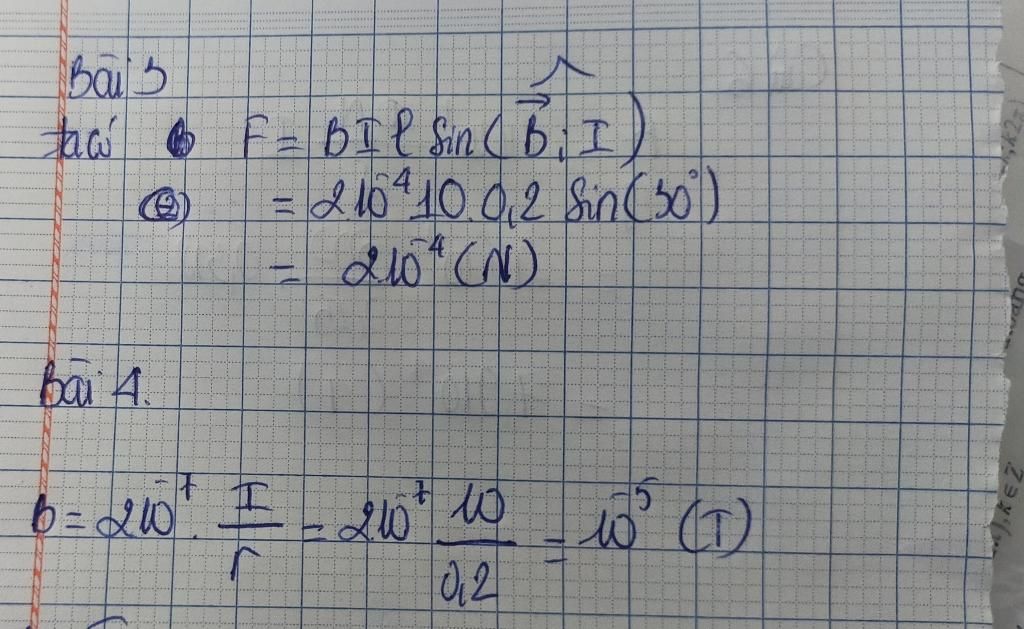 Bài 3
ta có F = BIl sin(B⃗; I)
(2) = 2.10⁻⁴.10.0,2 sin(30°)
= 2.10⁻⁴ (N)
Bài 4.
B = 2.10⁻⁷. I/r = 2.10⁻⁷ 10/0,2 = 10⁻⁵ (T)